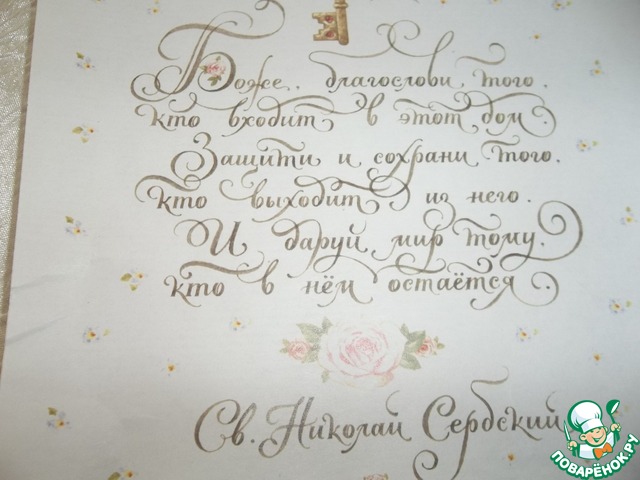 Боже, благослови того,
кто входит в этот дом
Защити и сохрани того,
кто выходит из него.
И даруй мир тому,
кто в нём остаётся.
Св. Николай Сербский
ПОВАРЁНОК.РУ